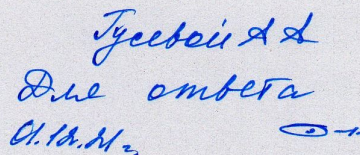 Гусевой А А
Для ответа
01.12.21г.